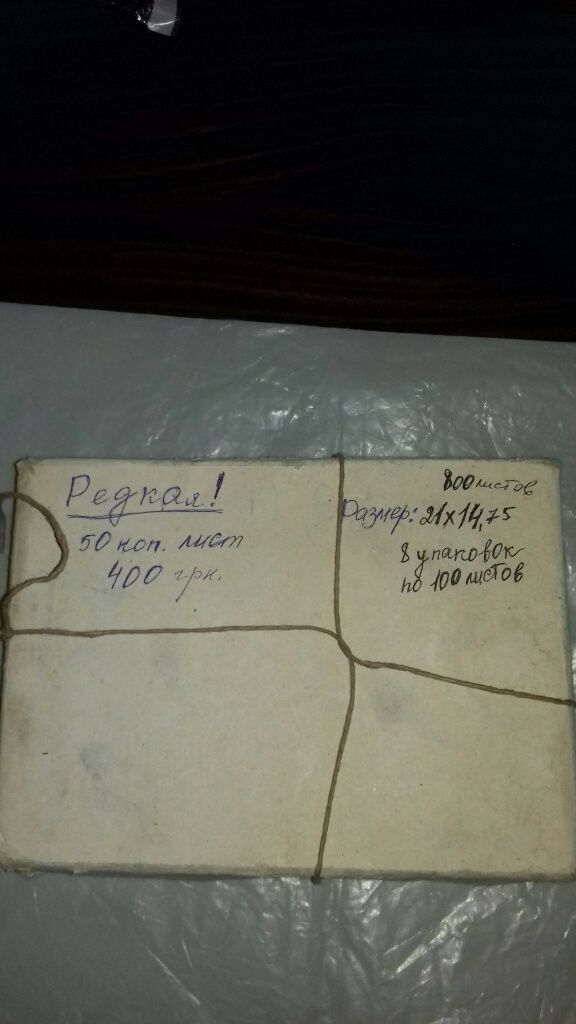 Редкая!
50 коп. лист
400 грн.
800 листов
Размер: 21х14,75
8 упаковок
по 100 листов